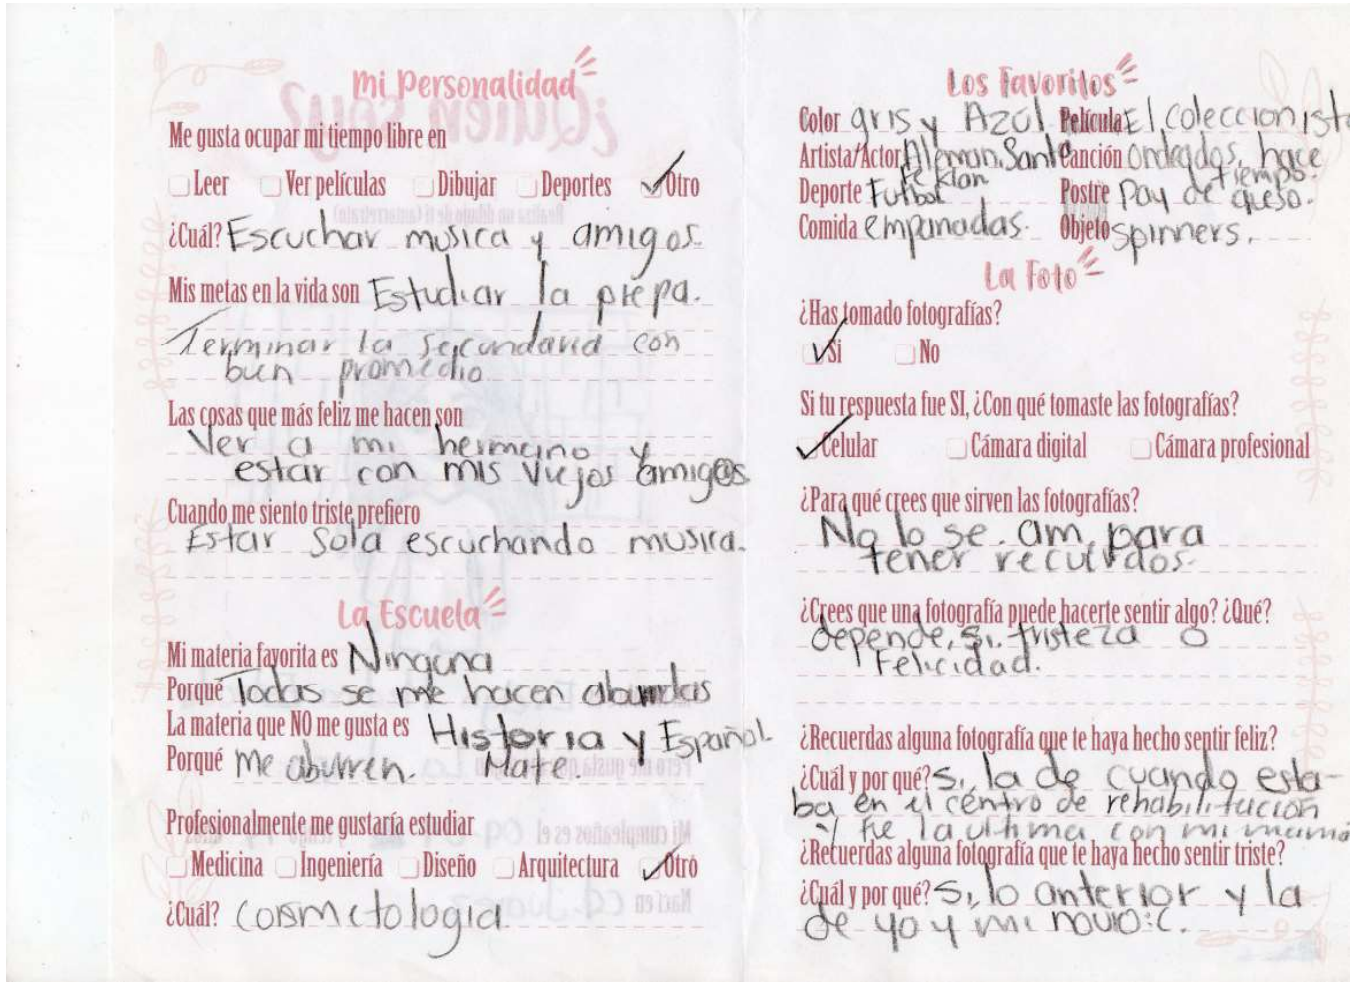 Mi Personalidad
Me gusta ocupar mi tiempo libre en
Leer Ver películas Dibujar Deportes Otro
¿Cuál? Escuchar musica y amigos.
Mis metas en la vida son Estudiar la prepa.
Terminar la secundaria con
buen promedio
Las cosas que más feliz me hacen son
Ver a mi hermano y
estar con mis viejos amig@s
Cuando me siento triste prefiero
Estar Sola escuchando musica.
La Escuela
Mi materia favorita es Ninguna
Porqué Todas se me hacen
La materia que NO me gusta es Historia y Español.
Porqué me aburren. Mate
Profesionalmente me gustaría estudiar
Medicina Ingeniería Diseño Arquitectura Otro
¿Cuál? cosmetologia
Los Favoritos
Color gris y Azúl Película El coleccionista
Artista/Actor Aleman, Santa Canción ondeados, hace
fe klan tiempo.
Deporte Futbol Postre Pay de queso.
Comida empanadas. Objeto spinners.
La Foto
¿Has tomado fotografías?
Si No
Si tu respuesta fue SI, ¿Con qué tomaste las fotografías?
Celular Cámara digital Cámara profesional
¿Para qué crees que sirven las fotografías?
No lo se. am, para
tener recuerdos.
¿Crees que una fotografía puede hacerte sentir algo? ¿Qué?
depende, si. tristeza o
Felicidad.
¿Recuerdas alguna fotografía que te haya hecho sentir feliz?
¿Cuál y por qué? Si, la de cuando esta-
ba en el centro de rehabilitación
y fue la ultima con mi mamá
¿Recuerdas alguna fotografía que te haya hecho sentir triste?
¿Cuál y por qué? Si, lo anterior y la
de yo y mi novio :c.